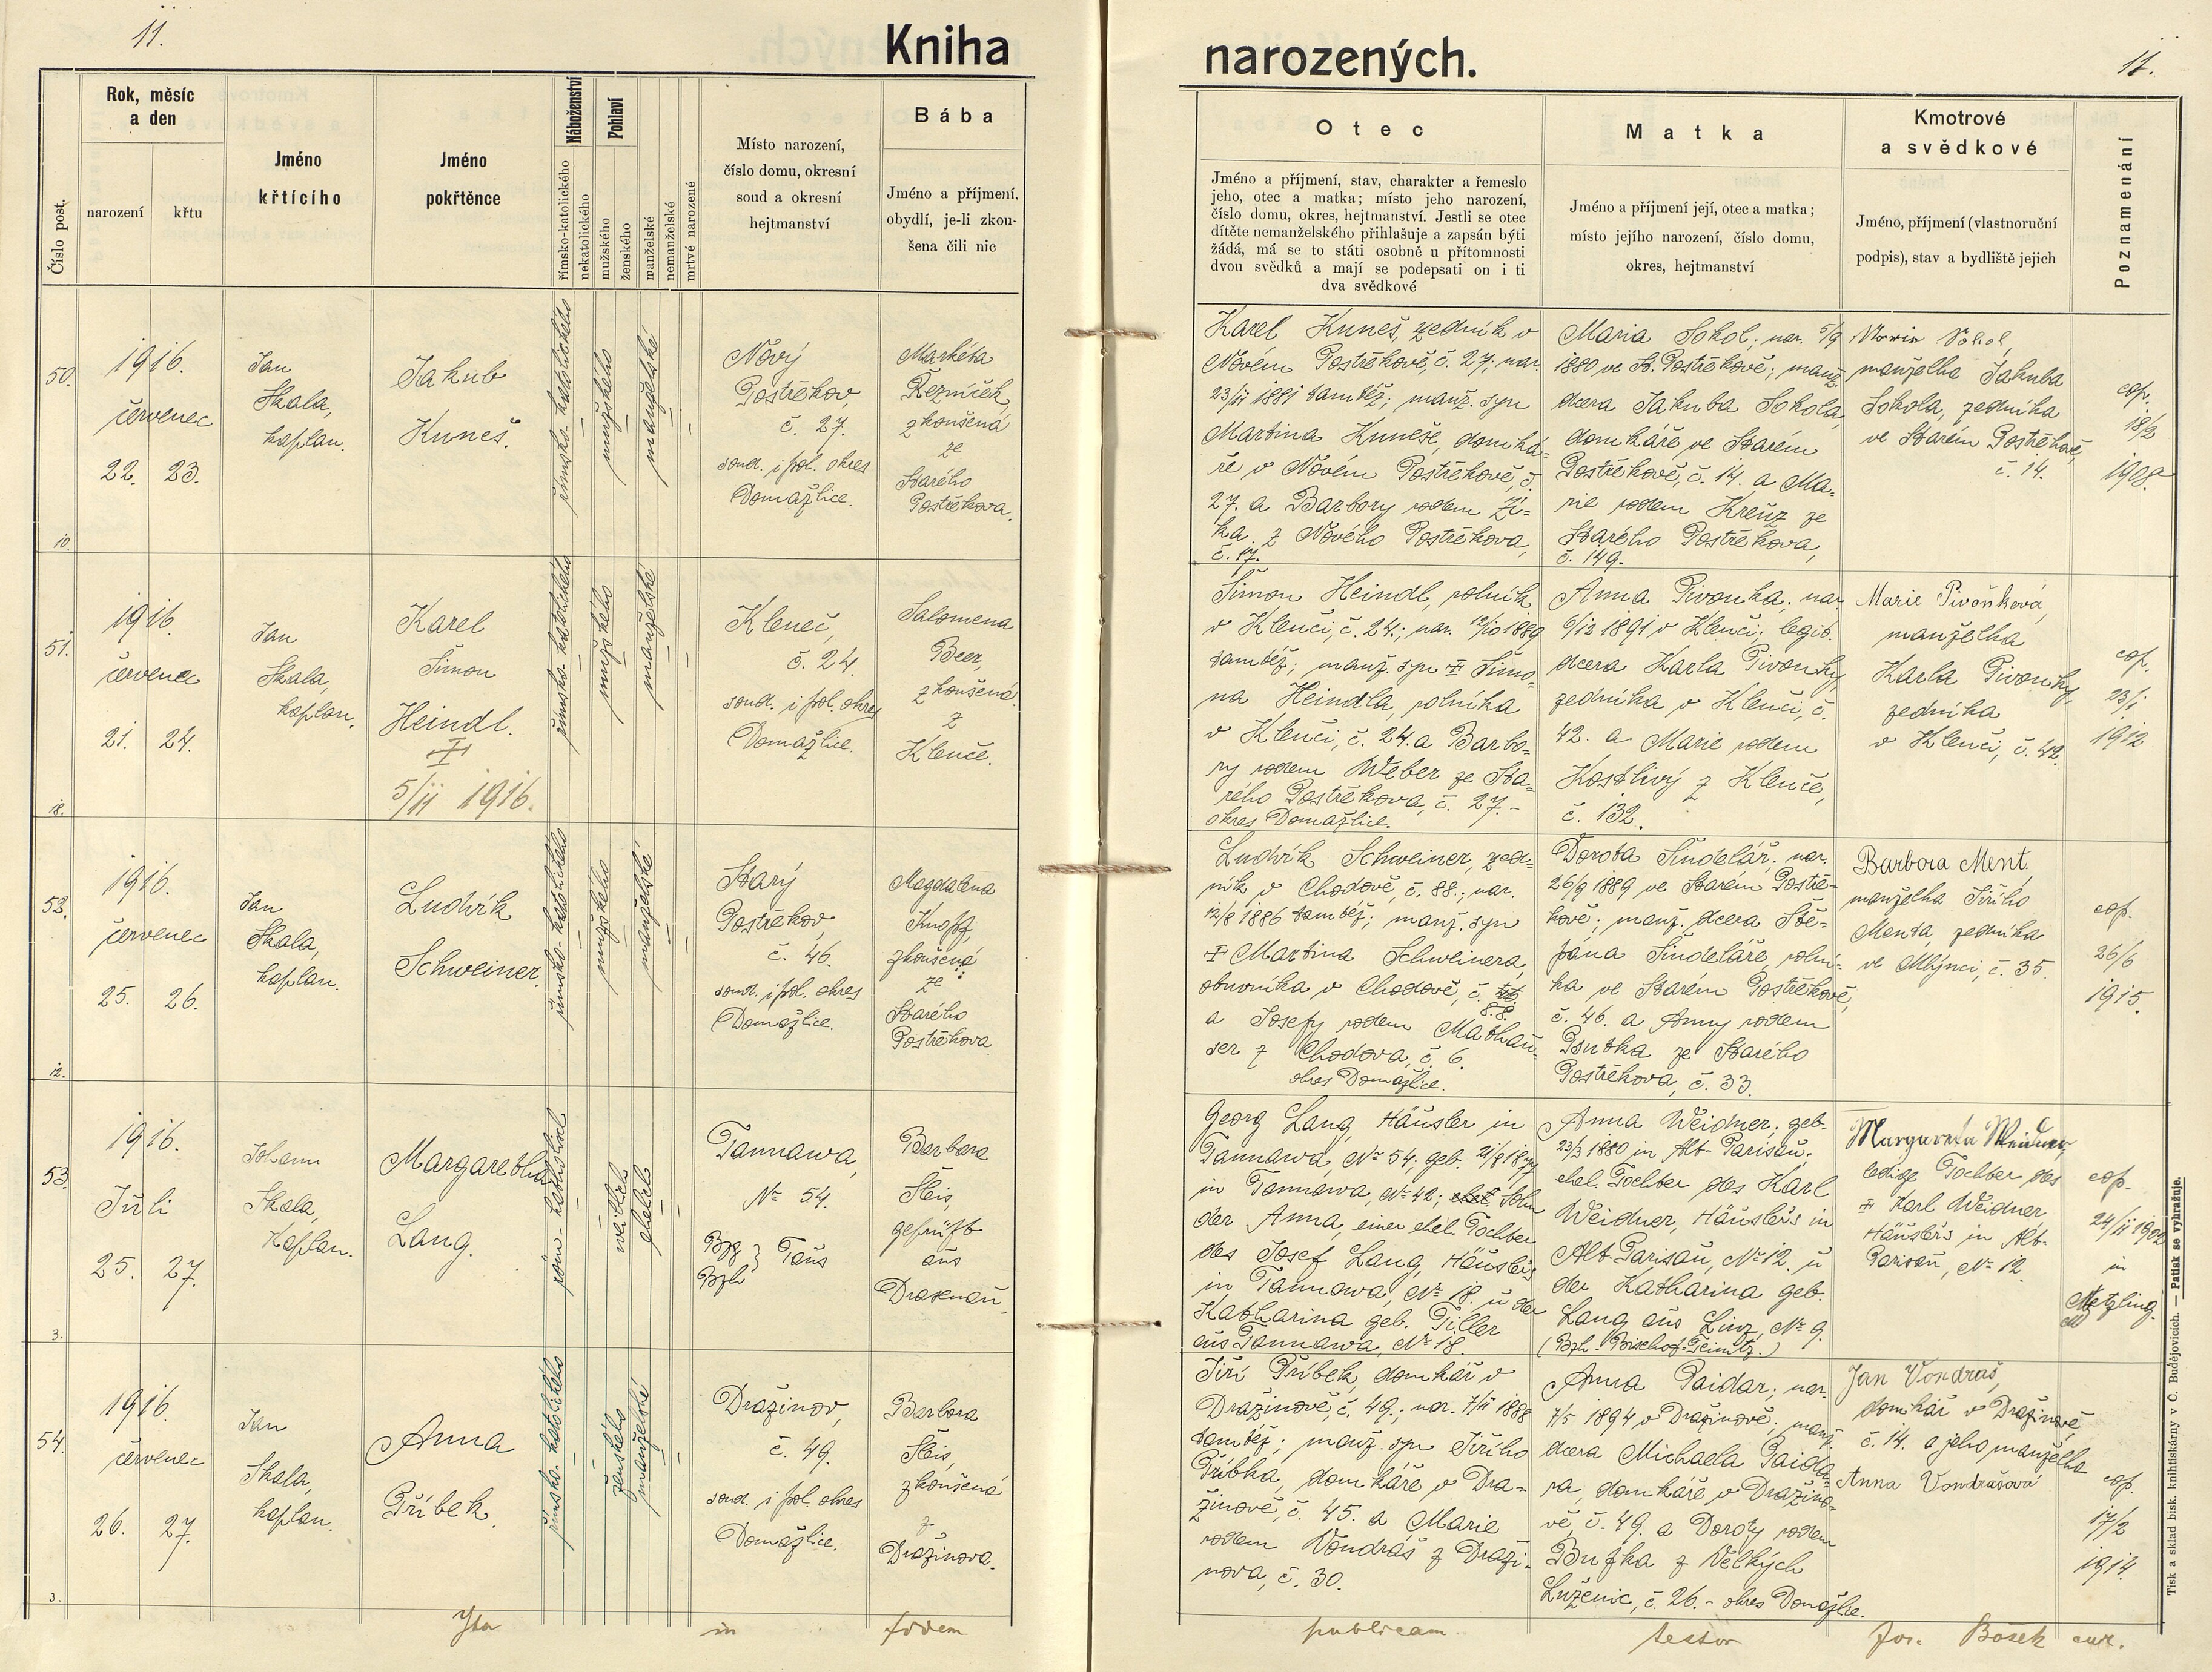 11.
Kniha
narozených.
11.
Číslo post.
Rok, měsíc
a den
narození
křtu
Jméno
křtícího
Jméno
pokřtěnce
Náboženství
římsko-katolického
nekatolického
Pohlaví
mužského
ženského
manželské
nemanželské
mrtvé narozené
Místo narození,
číslo domu, okresní
soud a okresní
hejtmanství
Bába
Jméno a příjmení,
obydlí, je-li zkou-
šena čili nic
Otec
Jméno a příjmení, stav, charakter a řemeslo
jeho, otec a matka; místo jeho narození,
číslo domu, okres, hejtmanství. Jestli se otec
dítěte nemanželského přihlašuje a zapsán býti
žádá, má se to státi osobně u přítomnosti
dvou svědků a mají se podepsati on i ti
dva svědkové
Matka
Jméno a příjmení její, otec a matka;
místo jejího narození, číslo domu,
okres, hejtmanství
Kmotrové
a svědkové
Jméno, příjmení (vlastnoruční
podpis), stav a bydliště jejich
Poznamenání
50.
1916.
červenec
22. 23.
10.
Jan
Skala,
kaplan.
Jakub
Kuneš.
římsko-katolického
mužského
manželské
Nový
Postřekov,
č. 27.
soud. i pol. okres
Domažlice.
Markéta
Řezníček,
zkoušená
ze
Starého
Postřekova.
Karel Kuneš, zedník v
Novém Postřekově, č. 27; nar.
23/11 1881 tamtéž; manž. syn
Martina Kuneše, domká-
ře v Novém Postřekově, č.
27. a Barbory rodem Zí-
ka z Nového Postřekova,
č. 17.
Maria Sokol; nar. 5/9
1880 ve St. Postřekově; manž.
dcera Jakuba Sokola,
domkáře ve Starém
Postřekově, č. 14. a Ma-
rie rodem Kreuz ze
Starého Postřekova,
č. 149.
Sokol,
manželka Jakuba
Sokola, zedníka
ve Starém Postřekově,
č. 14.
cop.
18/2
1908.
51.
1916.
červenec
21. 24.
18.
Jan
Skala,
kaplan.
Karel
Šimon
Heindl.
5/11 1916.
římsko-katolického
mužského
manželské
Kleneč,
č. 24
soud. i pol. okres
Domažlice.
Salomena
Beer,
zkoušená
z
Klenče.
Šimon Heindl, rolník
v Klenči, č. 24.; nar. 12/10 1889
tamtéž; manž. syn Šimo-
na Heindla, rolníka
v Klenči, č. 24. a Barbo-
ry rodem Weber ze Sta-
rého Postřekova, č. 27.-
okres Domažlice.
Anna Pivonka. nar.
6/12 1891 v Klenči; legit.
dcera Karla Pivonky,
zedníka v Klenči, č.
42. a Marie rodem
Kostlivý z Klenče,
č. 132.
Marie Pivoňková,
manželka
Karla Pivonky,
zedníka
v Klenči, č. 42.
cop.
23/1
1912
52.
1916.
červenec
25. 26.
12.
Jan
Skala,
kaplan.
Ludvík
Schweiner.
římsko-katolického
mužského
manželské
Starý
Postřekov,
č. 46.
soud. i pol. okres
Domažlice.
Magdalena
Knopf,
zkoušená
ze
Starého
Postřekova
Ludvík Schweiner, zed-
ník v Chodově, č. 88.; nar.
12/8 1886 tamtéž; manž. syn
Martina Schweinera,
obuvníka v Chodově, č.
88.
a Josefy rodem Mathau-
ser z Chodova, č. 6.
okres Domažlice.
Dorota Šindelář; nar.
26/9 1889 ve Starém Postře-
kově; manž. dcera Ště-
pána Šindeláře, rolní-
ka ve Starém Postřekově,
č. 46. a Anny rodem
Psutka ze Starého
Postřekova, č. 33.
Barbora Ment,
manželka Jiřího
Menta, zedníka
ve Mlýnci, č. 35.
cop.
26/6
1915.
53.
1916.
Juli
25. 27.
3.
Johann
Skala,
Kaplan.
Margaretha
Lang.
röm.-katholisch
weiblich
ehelich
Tannawa,
No 54.
Bzg } Taus
Bzh
Barbara
Šteis,
geprüft
aus
Drasenau.
Georg Lang, Häusler in
Tannawa, No 54; geb. 21/8 1877
in Tannawa, No 42; Sohn
der Anna, einer ehel. Tochter
des Josef Lang, Häuslers
in Tannawa, No 18 u der
Katharina geb. Tiller
aus Tannawa, No 18.
Anna Weidner; geb.
23/3 1880 in Alt-Parisau;
ehel. Tochter des Karl
Weidner, Häuslers in
Alt-Parisau, No 12. u
der Katharina geb.
Lang aus Linz, No 9.
(Bzh. Bischof-Teinitz.)
Margareta Weidner,
ledige Tochter des
Karl Weidner
Häuslers in Alt-
Parisau, No 12
cop.
24/11 1902
in
Metzling.
54.
1916.
červenec
26. 27.
3.
Jan
Skala,
kaplan.
Anna
Příbek.
římsko-katolického
ženského
manželské
Dražinov,
č. 49.
soud. i pol. okres
Domažlice.
Barbora
Šteis,
zkoušená
z
Dražinova.
Jiří Příbek, domkář v
Dražinově, č. 49.; nar. 7/11 1888
tamtéž; manž. syn Jiřího
Příbka, domkáře v Dra-
žinově, č. 45. a Marie
rodem Vondráš z Draži-
nova, č. 30.
Anna Paidar; nar.
7/5 1894 v Dražinově; manž.
dcera Michaela Paida-
ra, domkáře v Dražino-
vě, č. 49. a Doroty rodem
Bufka z Velkých
Luženic, č. 26.- okres Domažlice.
Jan Vondraš,
domkář v Dražinově,
č. 14. a jeho manželka
Anna Vondrašová
cop.
17/2
1914.
Ita in fidem publicam testor Jos. Bošek cur.
Tisk a sklad bisk. knihtiskárny v Č. Budějovicích. — Patisk se vyhražuje.